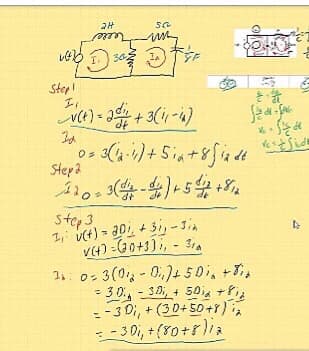 2H 5Ω
v(t) I₁ 3Ω I₂ 1/8 F
Step 1
I₁
v(t) = 2 di₁/dt + 3(i₁-i₂)
I₂
0 = 3(i₂-i₁) + 5i₂ + 8∫i₂ dt
Step 2
I₂ 0 = 3(di₂/dt - di₁/dt) + 5 di₂/dt + 8i₂
Step 3
I₁: v(t) = 2Di₁ + 3i₁ - 3i₂
v(t) = (2D+3)i₁ - 3i₂
I₂: 0 = 3(Di₂ - Di₁) + 5Di₂ + 8i₂
= 3Di₂ - 3Di₁ + 5Di₂ + 8i₂
= -3Di₁ + (3D+5D+8)i₂
= -3Di₁ + (8D+8)i₂